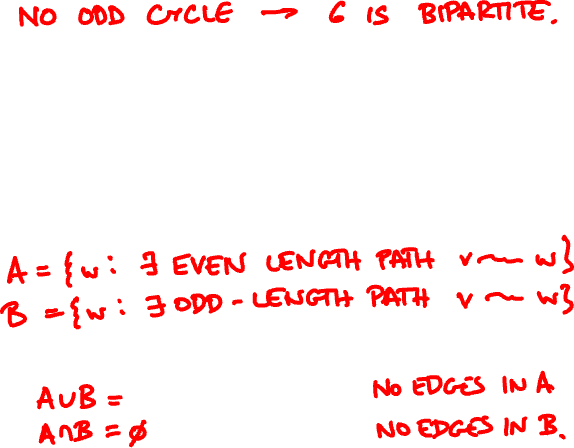 NO ODD CYCLE → G IS BIPARTITE.
A = {w : ∃ EVEN LENGTH PATH v ~ w}
B = {w : ∃ ODD-LENGTH PATH v ~ w}
A∪B =
NO EDGES IN A
A∩B = ∅
NO EDGES IN B.